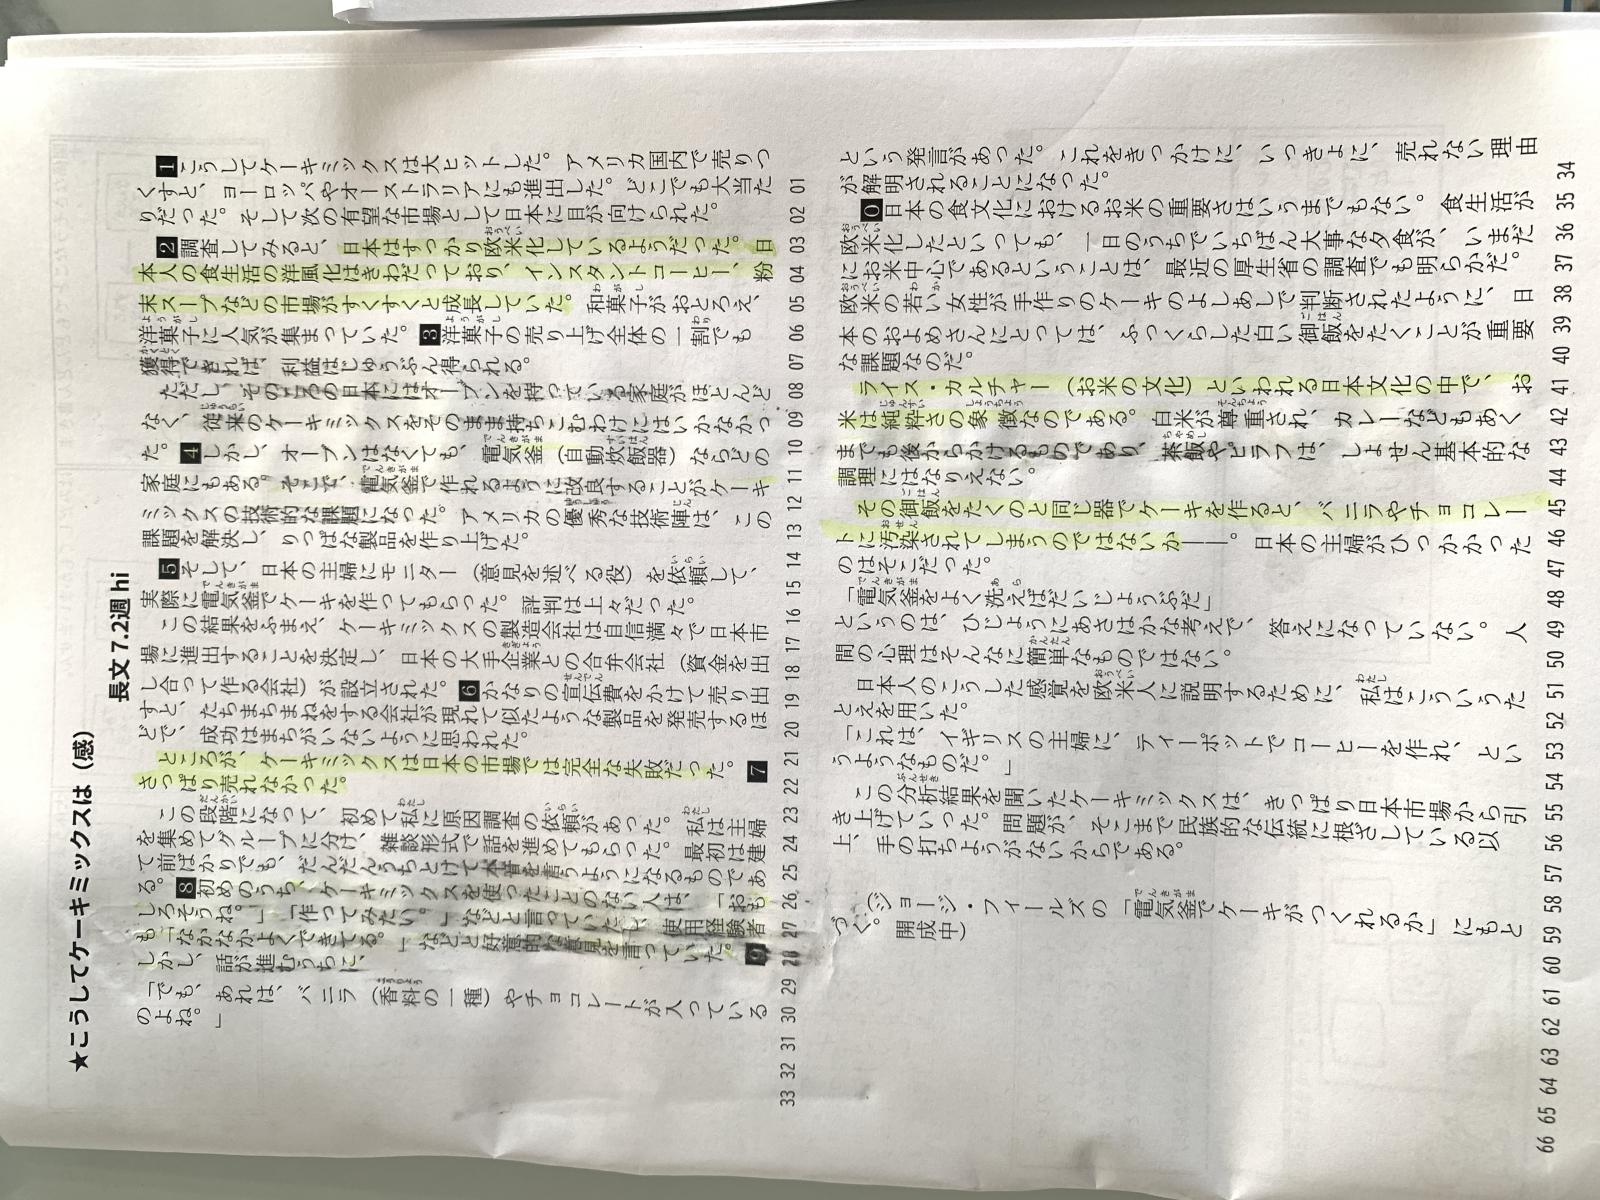 ★こうしてケーキミックスは（感）
長文 7.2週 hi
1こうしてケーキミックスは大ヒットした。アメリカ国内で売りつ
くすと、ヨーロッパやオーストラリアにも進出した。どこでも大当た
りだった。そして次の有望な市場として日本に目が向けられた。
2調査してみると、日本はすっかり欧米化しているようだった。日
本人の食生活の洋風化はきわだっており、インスタントコーヒー、粉
末スープなどの市場がすくすくと成長していた。和菓子がおとろえ、
洋菓子に人気が集まっていた。3洋菓子の売り上げ全体の一割でも
獲得できれば、利益はじゅうぶん得られる。
ただし、そのころの日本にはオーブンを持っている家庭がほとんど
なく、従来のケーキミックスをそのまま持ちこむわけにはいかなかっ
た。4しかし、オーブンはなくても、電気釜（自動炊飯器）ならどの
家庭にもある。そこで、電気釜で作れるように改良することがケーキ
ミックスの技術的な課題になった。アメリカの優秀な技術陣は、この
課題を解決し、りっぱな製品を作り上げた。
5そして、日本の主婦にモニター（意見を述べる役）を依頼して、
実際に電気釜でケーキを作ってもらった。評判は上々だった。
この結果をふまえ、ケーキミックスの製造会社は自信満々で日本市
場に進出することを決定し、日本の大手企業との合弁会社（資金を出
し合って作る会社）が設立された。6かなりの宣伝費をかけて売り出
すと、たちまちまねをする会社が現れて似たような製品を発売するほ
どで、成功はまちがいないように思われた。
ところが、ケーキミックスは日本の市場では完全な失敗だった。7
さっぱり売れなかった。
この段階になって、初めて私に原因調査の依頼があった。私は主婦
を集めてグループに分け、雑談形式で話を進めてもらった。最初は建
て前ばかりでも、だんだんうちとけて本音を言うようになるものであ
る。8初めのうち、ケーキミックスを使ったことのない人は、「おも
しろそうね。」「作ってみたい。」などと言っていたし、使用経験者
も「なかなかよくできてる。」などと好意的な意見を言っていた。9
しかし、話が進むうちに、
「でも、あれは、バニラ（香料の一種）やチョコレートが入っている
のよね。」
01 02 03 04 05 06 07 08 09 10 11 12 13 14 15 16 17 18 19 20 21 22 23 24 25 26 27 28 29 30 31 32 33
という発言があった。これをきっかけに、いっきょに、売れない理由
が解明されることになった。
0日本の食文化におけるお米の重要さはいうまでもない。食生活が
欧米化したといっても、一日のうちでいちばん大事な夕食が、いまだ
にお米中心であるということは、最近の厚生省の調査でも明らかだ。
欧米の若い女性が手作りのケーキのよしあしで判断されたように、日
本のおよめさんにとっては、ふっくらした白い御飯をたくことが重要
な課題なのだ。
ライス・カルチャー（お米の文化）といわれる日本文化の中で、お
米は純粋さの象徴なのである。白米が尊重され、カレーなどもあく
までも後からかけるものであり、茶飯やピラフは、しょせん基本的な
調理にはなりえない。
その御飯をたくのと同じ器でケーキを作ると、バニラやチョコレー
トに汚染されてしまうのではないか――。日本の主婦がひっかかった
のはそこだった。
「電気釜をよく洗えばだいじょうぶだ」
というのは、ひじょうにあさはかな考えで、答えになっていない。人
間の心理はそんなに簡単なものではない。
日本人のこうした感覚を欧米人に説明するために、私はこういうた
とえを用いた。
「これは、イギリスの主婦に、ティーポットでコーヒーを作れ、とい
うようなものだ。」
この分析結果を聞いたケーキミックスは、きっぱり日本市場から引
き上げていった。問題が、そこまで民族的な伝統に根ざしている以
上、手の打ちようがないからである。
（ジョージ・フィールズの「電気釜でケーキがつくれるか」にもと
づく。開成中）
34 35 36 37 38 39 40 41 42 43 44 45 46 47 48 49 50 51 52 53 54 55 56 57 58 59 60 61 62 63 64 65 66